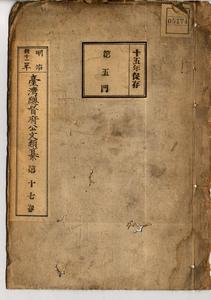 十五年保存
第五門
明治
臺灣總督府公文類纂 第十七卷